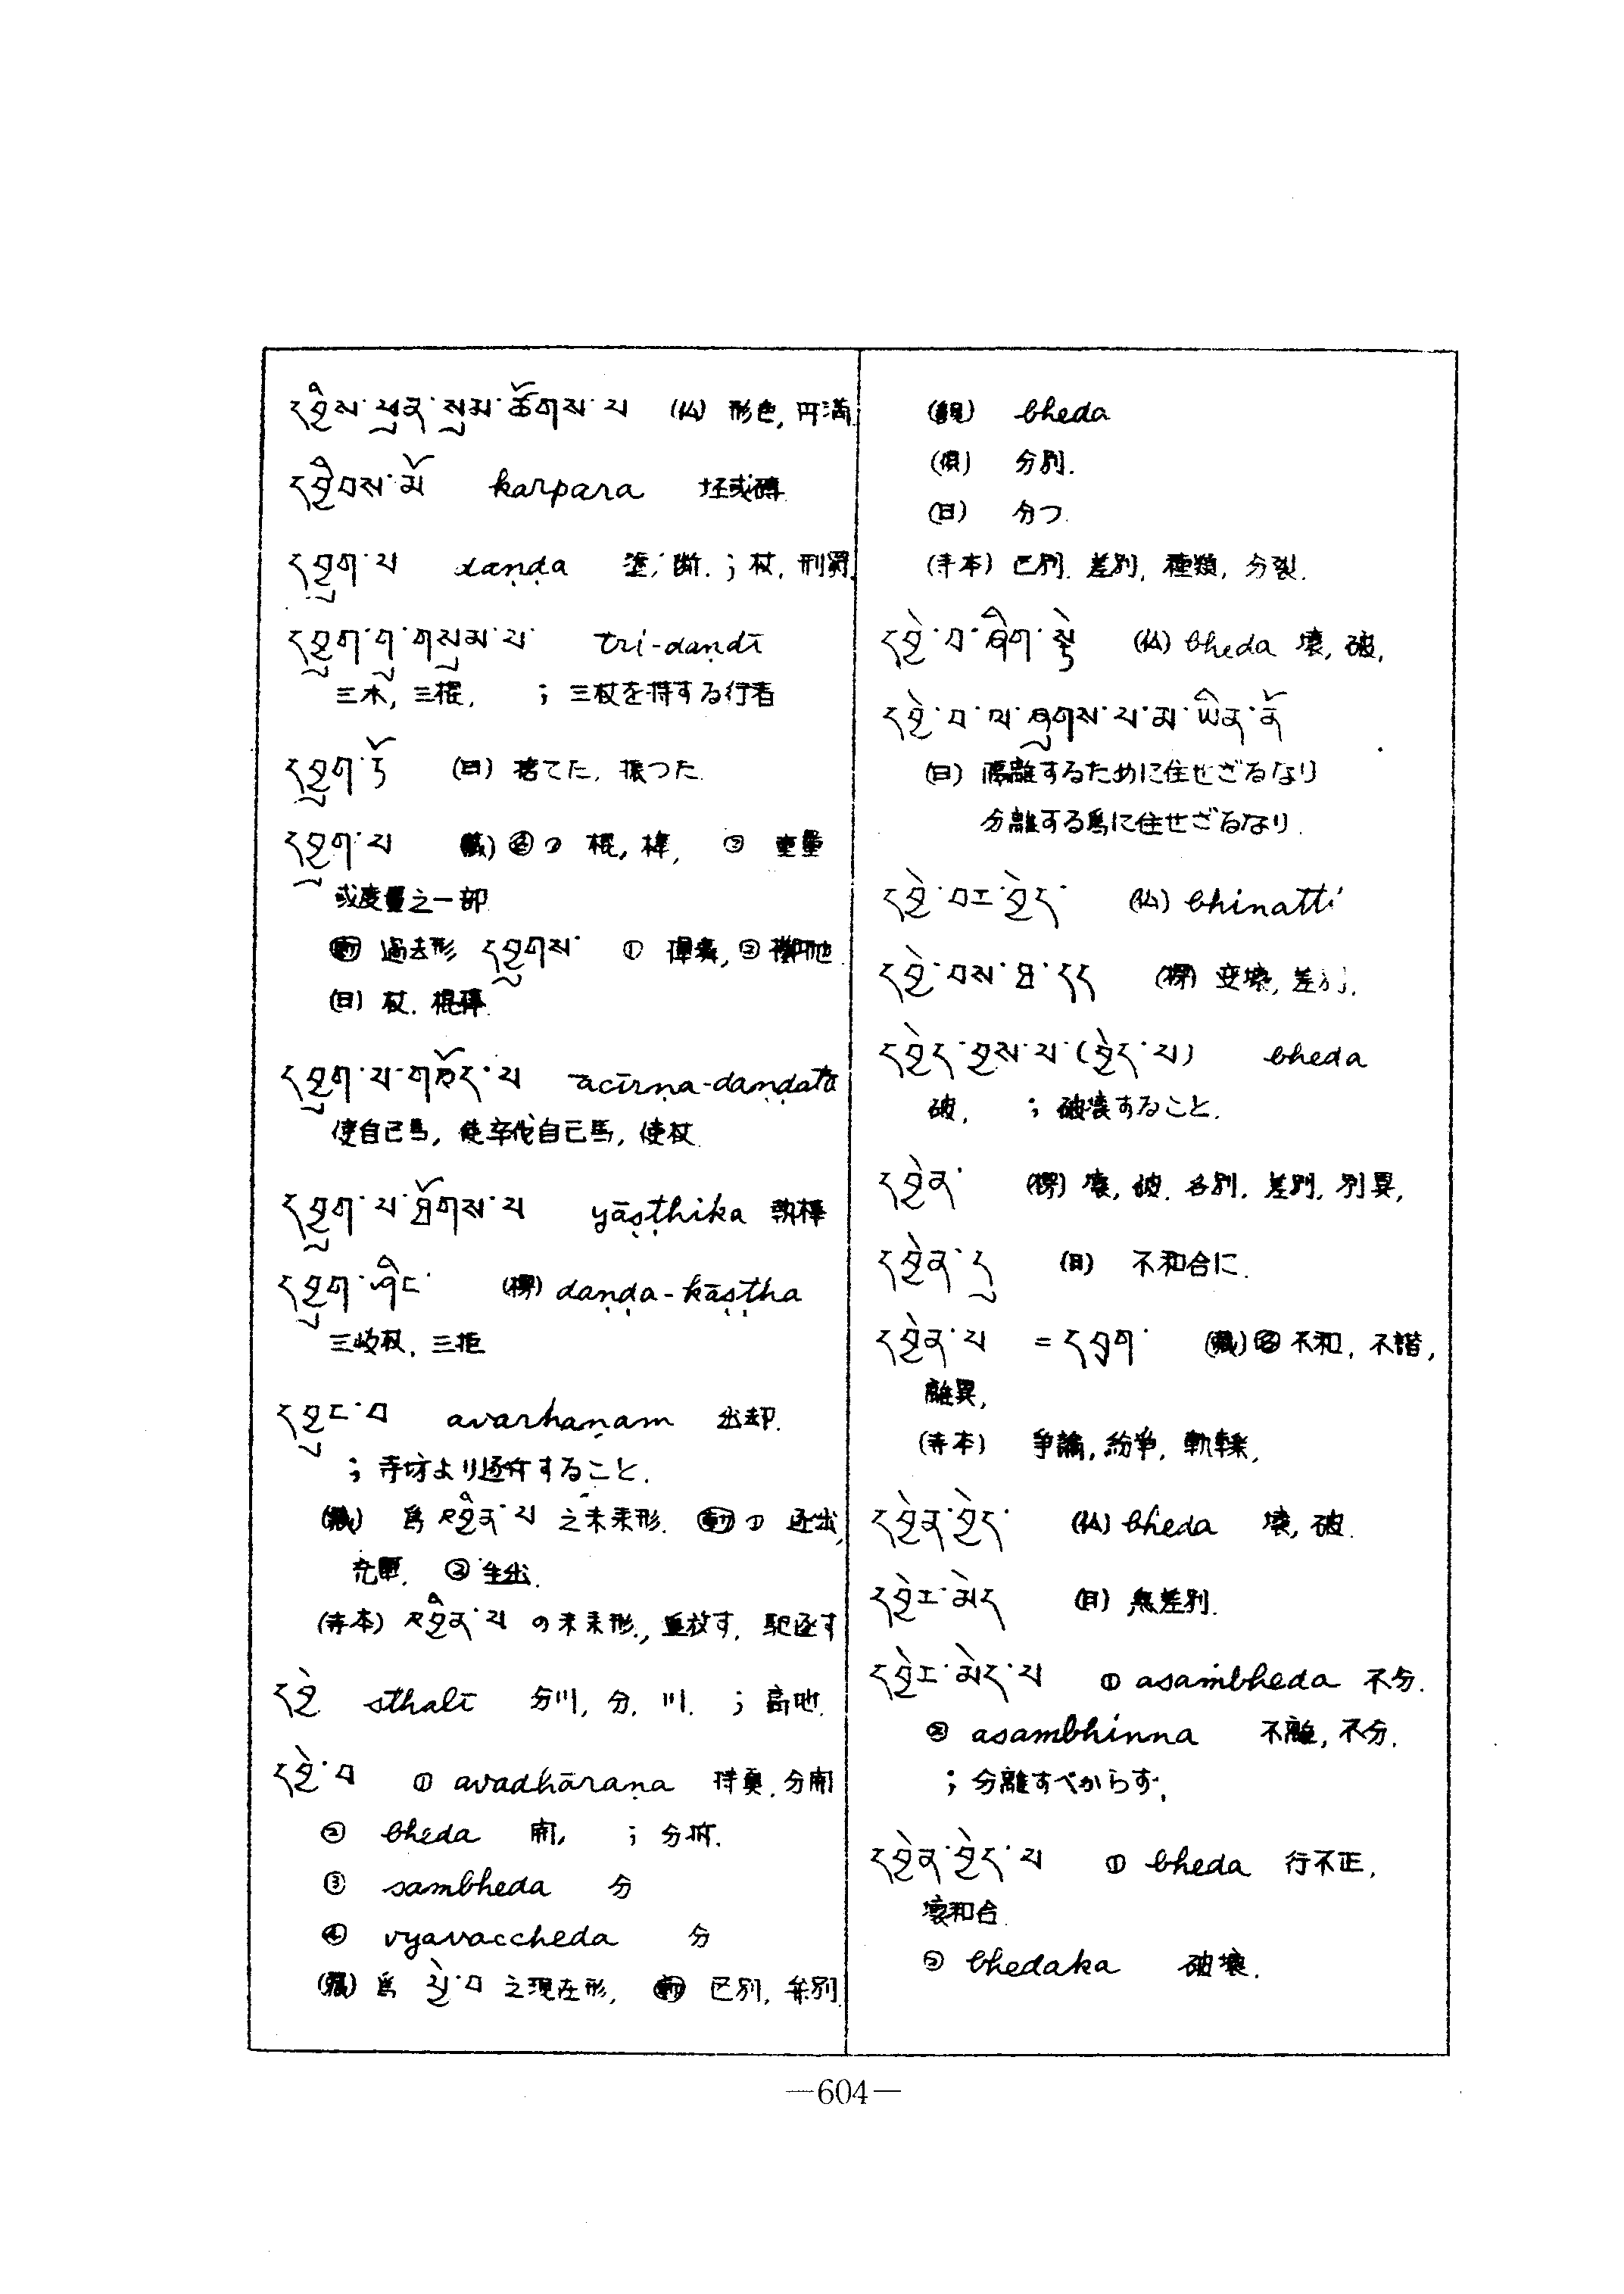 དབྱིས་ཕུན་སུམ་ཚོགས་པ (仏) 形色, 円満
དབྱིབས་མོ karpara 坯或磚
དབྱུག་པ daṇḍa 塗, 断. ; 杖, 刑罰.
དབྱུག་གུ་གསུམ་པ་ tri-daṇḍī
三木, 三棍, ; 三杖を持する行者
དབྱུག་ཏོ (日) 捨てた, 振つた.
དབྱུག་པ (蔵) 名① 棍, 棒, ② 重量
或度量之一部
動 過去形 དབྱུགས་ ① 揮舞, ②
(日) 杖. 棍棒.
དབྱུག་པ་གཅོད་པ ācīrṇa-daṇḍatā
使自己馬, 使卒伐自己馬, 使杖
དབྱུག་པ་ཐོགས་པ yāṣṭhika 執棒
དབྱུག་ཤིང་ (榜) daṇḍa-kāṣṭha
三岐杖, 三拒
དབྱུང་བ avarhaṇam 出却.
; 寺坊より逐斥すること.
(蔵) 爲 འབྱིན་པ 之未来形. 動① 逐出,
② 生出.
(寺本) འབྱིན་པ の未来形., 重放す, 駆逐す
དབྱེ sthalī 分川, 分, 川. ; 高地.
དབྱེ་བ ① avadhāraṇa 持奠, 分開
② bheda 開, ; 分析.
③ sambheda 分
④ vyavaccheda 分
(蔵) 爲 ཕྱེ་བ 之現在形, 動 区別, 弁別.
(梶) bheda
(倶) 分別.
(日) 分つ.
(寺本) 区別. 差別, 種類, 分裂.
དབྱེ་བ་ཞིག་སྟེ (仏) bheda 壊, 破,
དབྱེ་བ་ལ་ཞུགས་པ་མ་ཡིན་ནོ
(日) 隔離するために住せざるなり
分離する爲に住せざるなり.
དབྱེ་བར་བྱེད་ (仏) bhinatti
དབྱེ་བས་ཐ་དད (榜) 変壊, 差別.
དབྱེད་བྱས་པ་(བྱེད་པ) bheda
破, ; 破壊すること.
དབྱེན་ (榜) 壊, 破. 各別. 差別. 別異,
དབྱེན་དུ (日) 不和合に.
དབྱེན་པ = དཀྲུག་ (蔵) 名 不和, 不諧,
離異,
(寺本) 争論, 紛争, 軋轢,
དབྱེན་བྱེད་ (仏) bheda 壊, 破.
དབྱེར་མེད (日) 無差別.
དབྱེར་མེད་པ ① asaṁbheda 不分.
② asambhinna 不離, 不分.
; 分離すべからず.
དབྱེན་བྱེད་པ ① bheda 行不正,
壊和合.
② bhedaka 破壊.
—604—